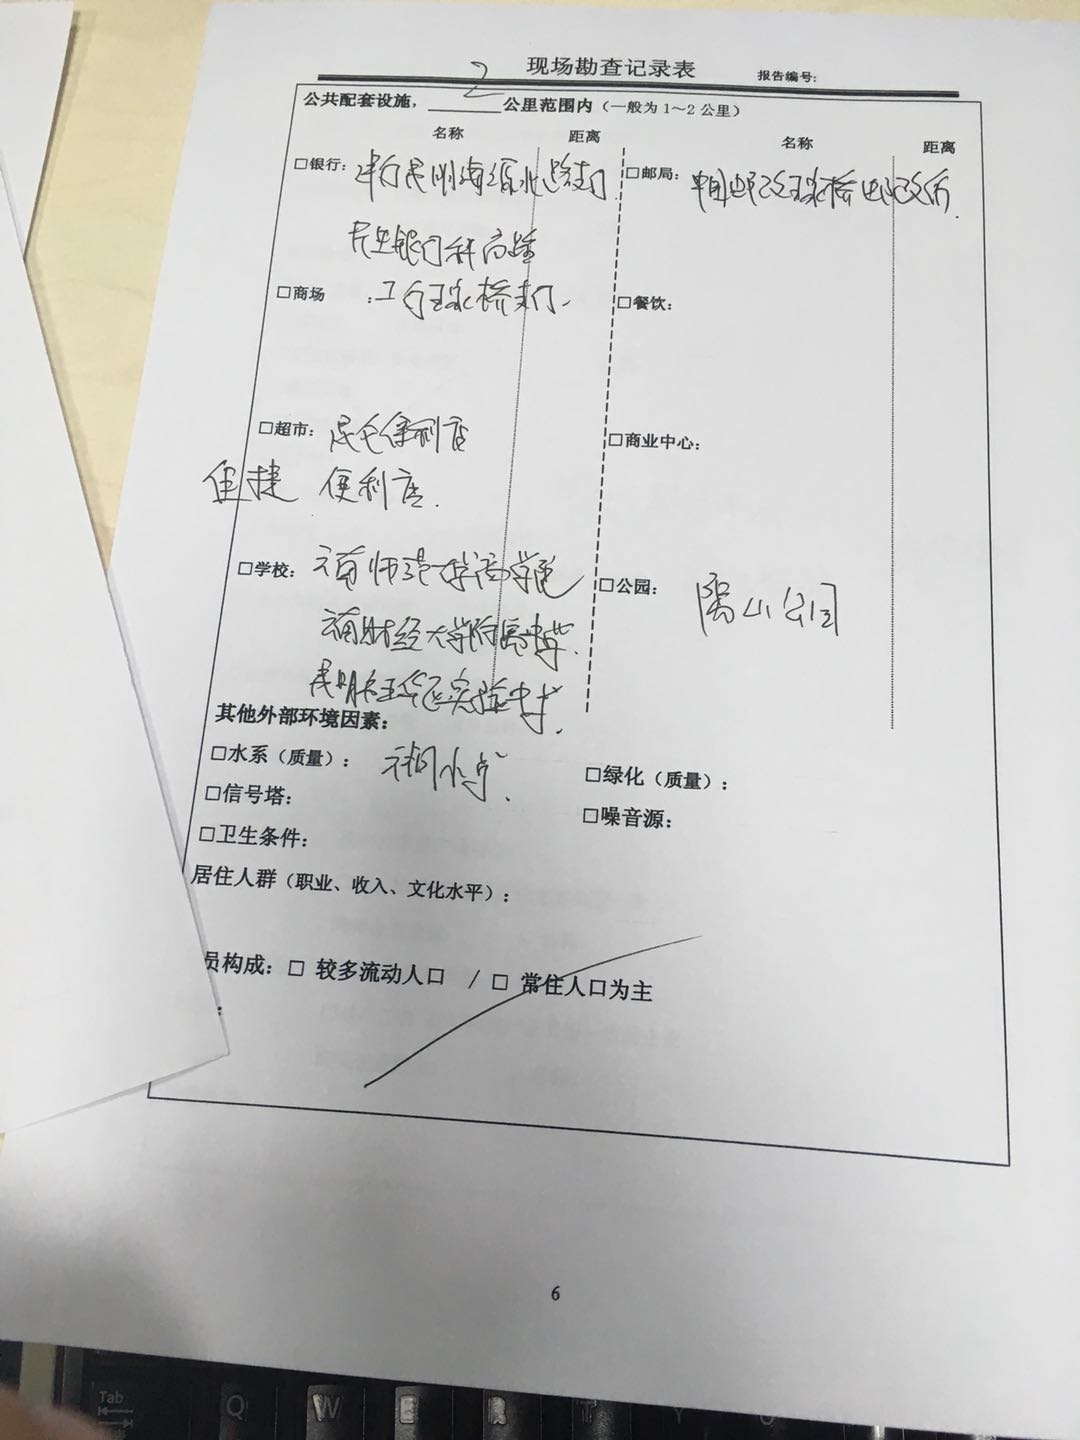 现场勘查记录表
报告编号:
公共配套设施，2公里范围内（一般为1～2公里）
名称 距离 名称 距离
□银行: 建行昆明海源北路支行 □邮局: 中国邮政王家桥邮政所.
民生银行科高路
□商场 : 工行王家桥支行. □餐饮:
□超市: 之佳便利店 □商业中心:
佳捷 便利店.
□学校: 云南师范大学商学院 □公园: 公园
云南财经大学附属中学.
昆明市五华区实验中学.
其他外部环境因素:
□水系（质量）: □绿化（质量）:
□信号塔: □噪音源:
□卫生条件:
居住人群（职业、收入、文化水平）:
员构成: □ 较多流动人口 / □ 常住人口为主
6
Tab Q W E R T Y U